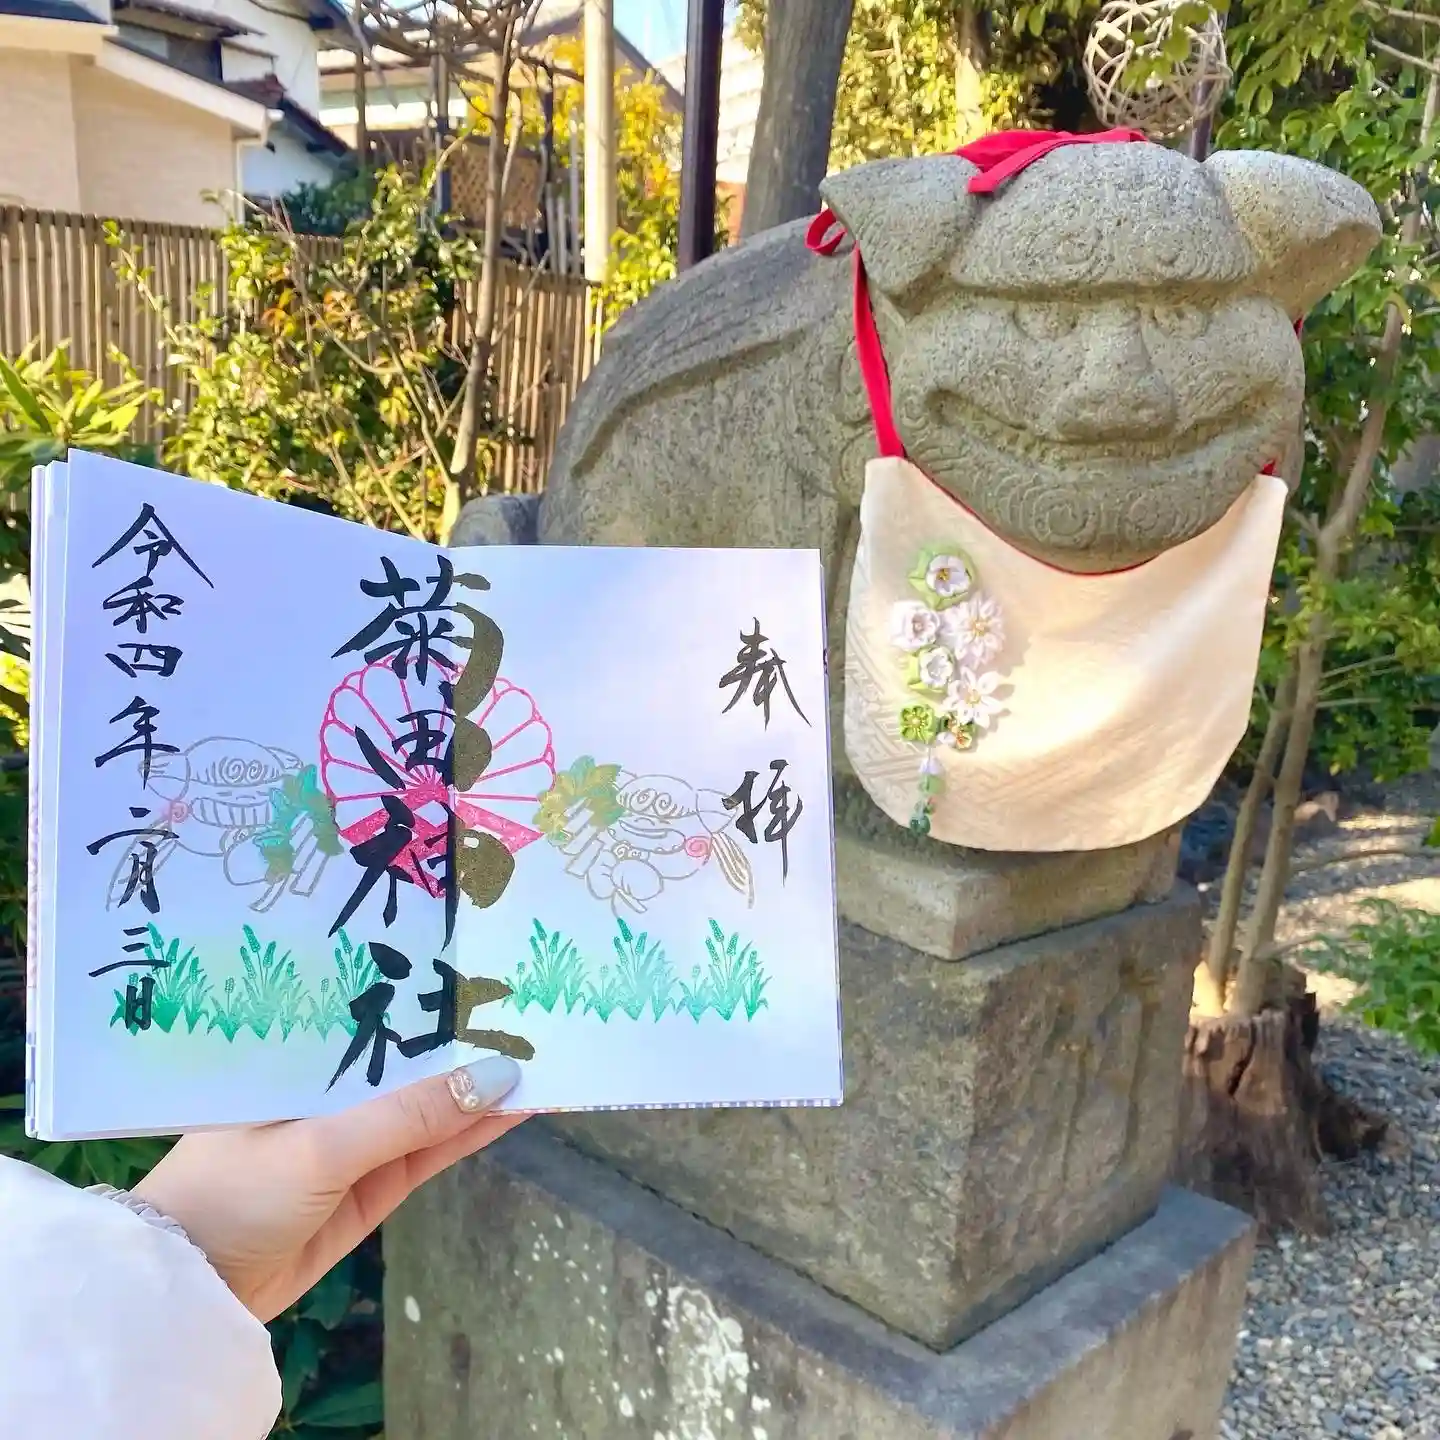 奉拝
菊田神社
令和四年二月三日